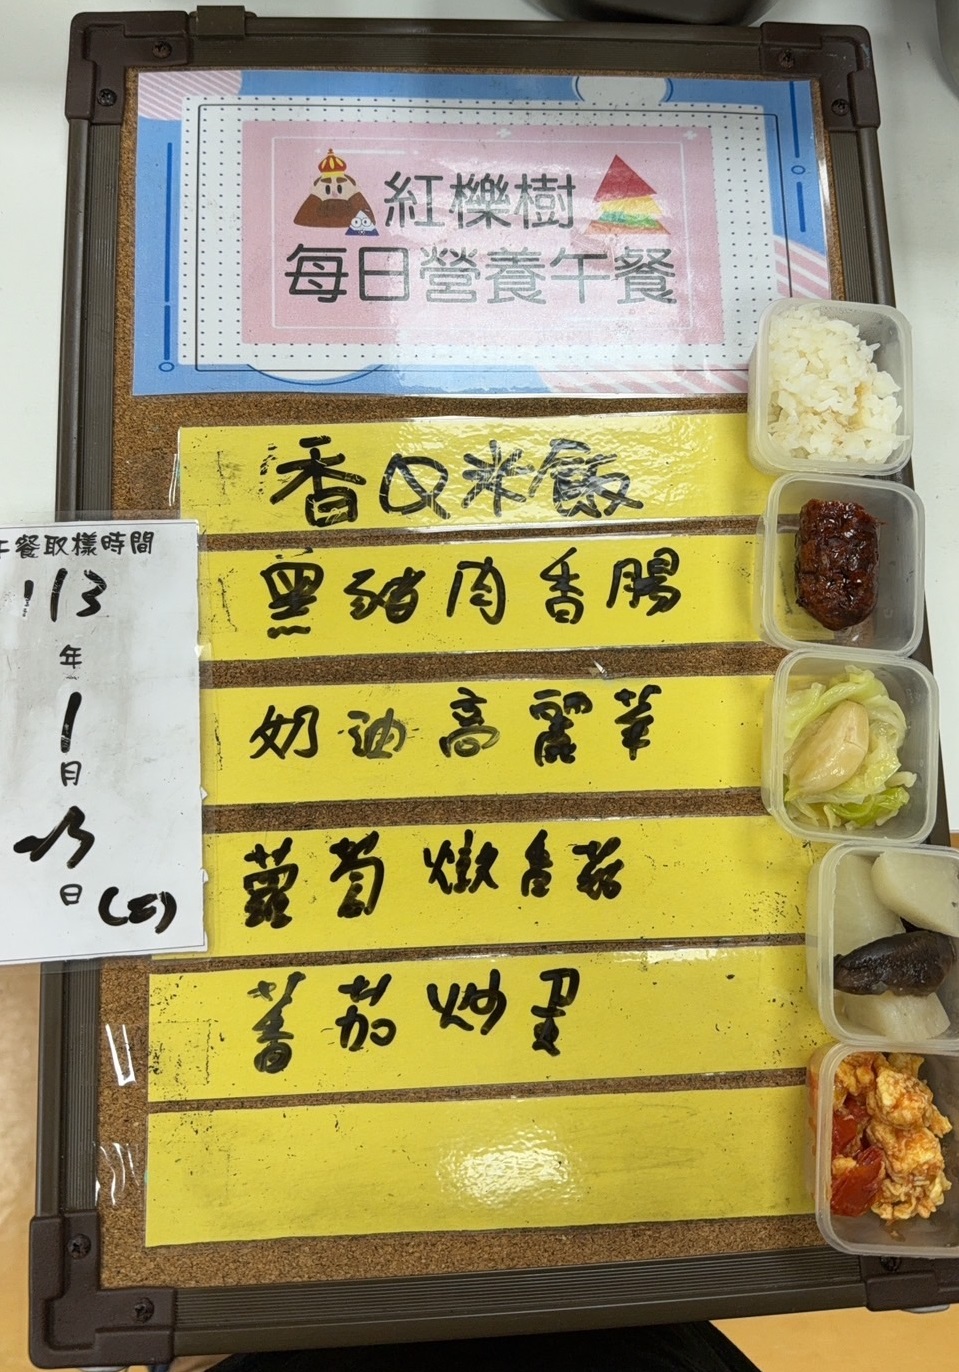 紅櫟樹
每日營養午餐
香Q米飯
黑豬肉香腸
午餐取樣時間
113
年
1
月
23
日 (二)
奶油高麗菜
蘿蔔燉香菇
蕃茄炒蛋